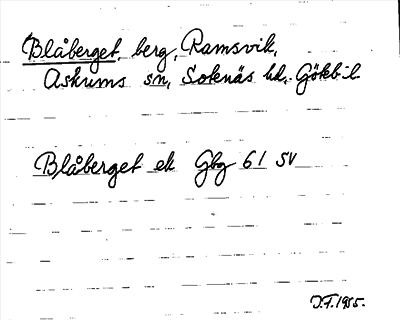 Blåberget, berg, Ramsvik,
Askums sn, Sotenäs hd, Götebl.
Blåberget ek Gbg 61 SV
J.F. 1955.